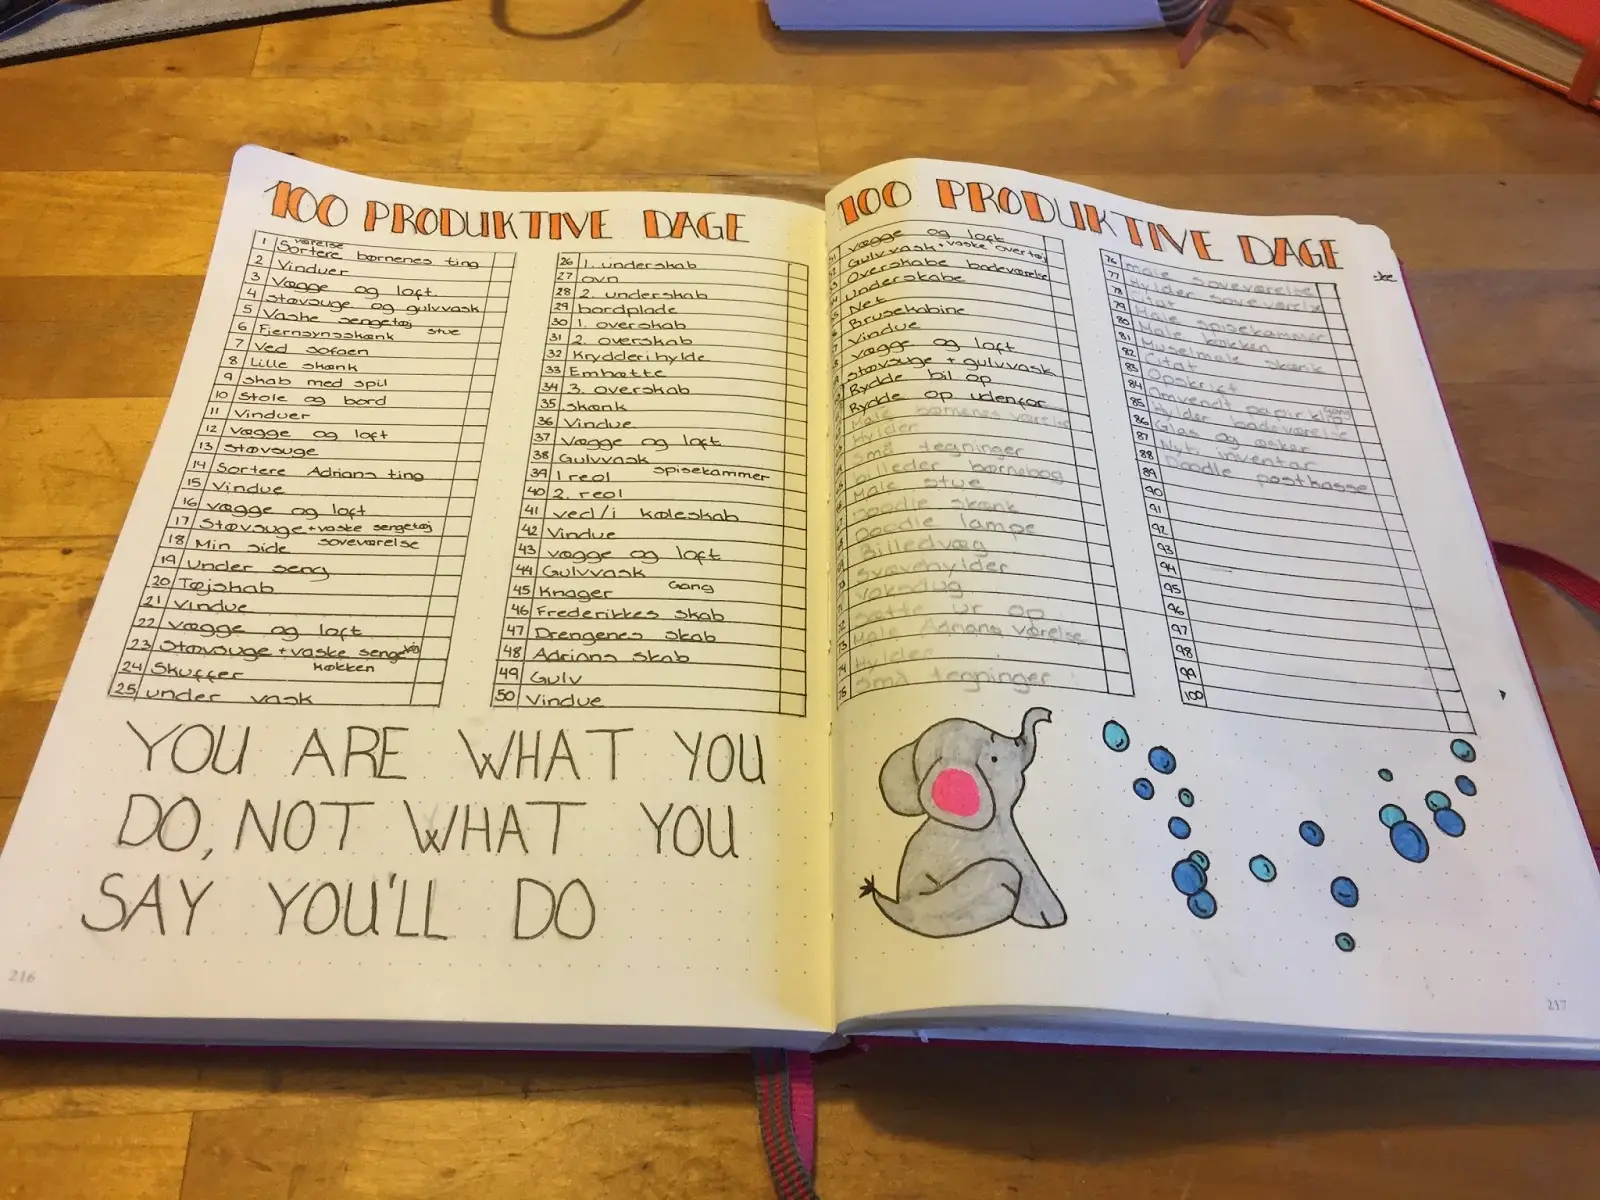 100 PRODUKTIVE DAGE
værelse
1 Sortere børnenes ting
2 Vinduer
3 Vægge og loft
4 Støvsuge og gulvvask
5 Vaske sengetøj
stue
6 Fjernsynsskænk
7 Ved sofaen
8 Lille skænk
9 Skab med spil
10 Stole og bord
11 Vinduer
12 Vægge og loft
13 Støvsuge
14 Sortere Adrians ting
15 Vindue
16 Vægge og loft
17 Støvsuge + vaske sengetøj
soveværelse
18 Min side
19 Under seng
20 Tøjskab
21 Vindue
22 Vægge og loft
23 Støvsuge + vaske sengetøj
køkken
24 Skuffer
25 under vask
26 1. underskab
27 ovn
28 2. underskab
29 bordplade
30 1. overskab
31 2. overskab
32 Krydderihylde
33 Emhætte
34 3. overskab
35 skænk
36 Vindue
37 Vægge og loft
38 Gulvvask
spisekammer
39 1 reol
40 2. reol
41 ved/i køleskab
42 Vindue
43 vægge og loft
44 Gulvvask
Gang
45 Knager
46 Frederikkes skab
47 Drengenes skab
48 Adrians skab
49 Gulv
50 Vindue
YOU ARE WHAT YOU
DO, NOT WHAT YOU
SAY YOU'LL DO
216
100 PRODUKTIVE DAGE
vægge og loft
Gulvvask + vaske overtøj
Overskabe badeværelse
Underskabe
Net
Brusekabine
Vindue
vægge og loft
Støvsuge + gulvvask
Rydde bil op
Rydde op udenfor
Male børnenes værelse
Hylder
Små tegninger
Billeder børnebog
Male stue
Doodle skænk
Doodle lampe
Billedvæg
Svævehylder
Voksdug
Sætte ur op
Male Adrians værelse
Hylder
Små tegninger
76 Male soveværelse
77 Hylder soveværelse
78 Citat
79 Male spisekammer
80 Male køkken
81 Muselmale skænk
82 Citat
83 Opskrift
84 Omvendt papirklip gang
85 Hylder badeværelse
86 Glas og æsker
87 Nyt inventar
88 Doodle postkasse
89
90
91
92
93
94
95
96
97
98
99
100
217